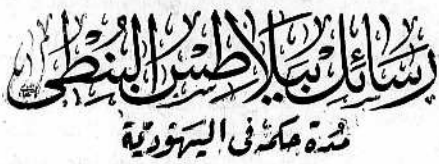 رسائل بيلاطس البنطي
مدة حكمه في اليهودية